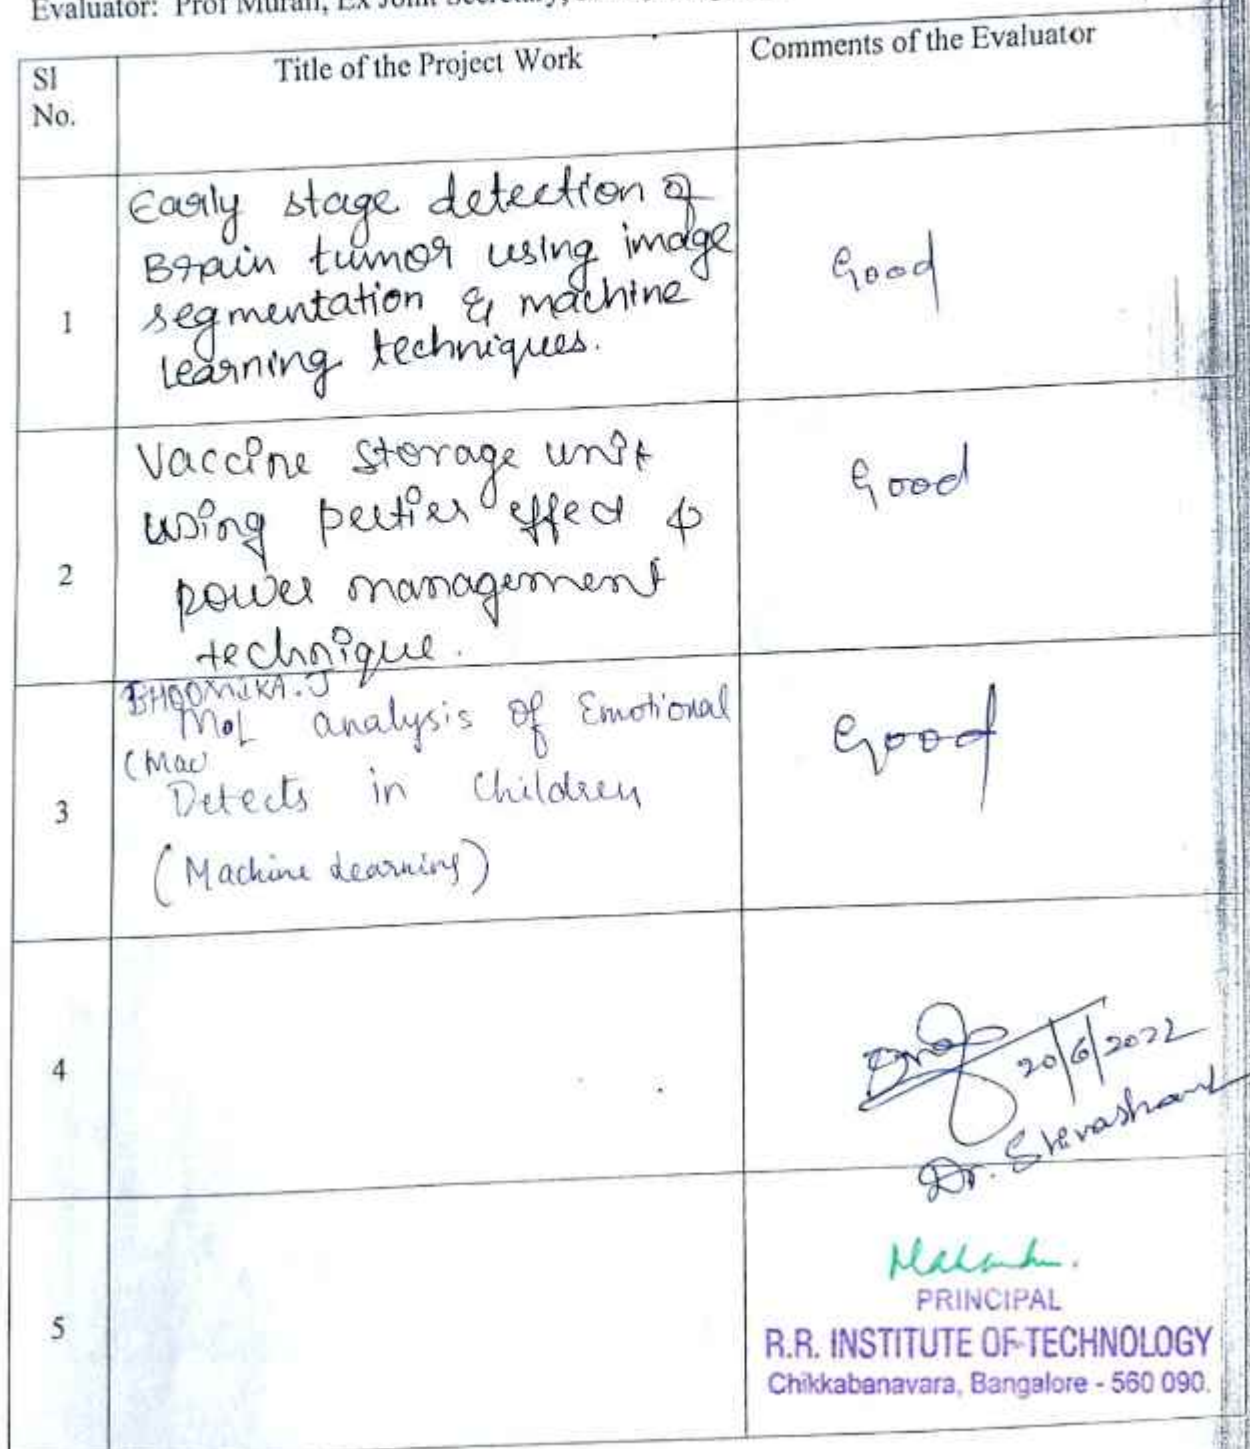 Evaluator: Prof Murali, Ex Joint Secretary,
Sl No.
Title of the Project Work
Comments of the Evaluator
1
Early stage detection of
Brain tumor using image
segmentation & machine
learning techniques.
Good
2
Vaccine storage unit
using peltier effect &
power management
technique.
Good
3
BHOOMIKA.J
analysis of Emotional
(Mac
Detects in Children
(Machine Learning)
Good
4
20/6/2022
Dr.
5
PRINCIPAL
R.R. INSTITUTE OF TECHNOLOGY
Chikkabanavara, Bangalore - 560 090.